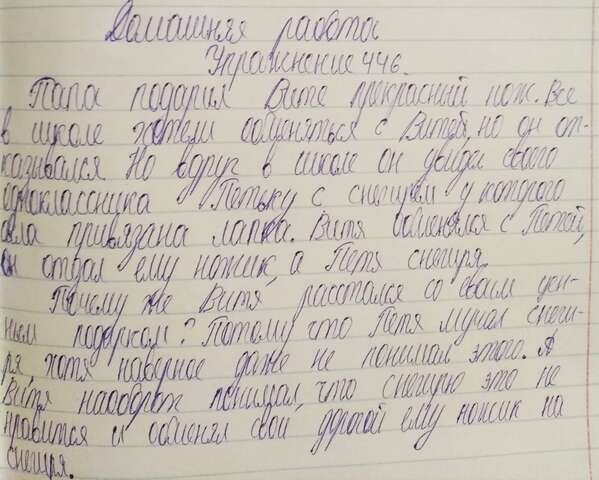 Домашняя работа
Упражнение 446.
Папа подарил Вите прекрасный нож. Все
в школе хотели обменяться с Витей, но он от-
казывался Но вдруг в школе он увидел своего
одноклассника Петьку с снегирем у которого
была привязана лапка. Витя обменялся с Петей,
он отдал ему ножик, а Петя снегиря.
Почему же Витя, расстался со своим цен-
ным подарком? Потому что Петя мучал снеги-
ря хотя наверное даже не понимал этого. А
Витя наоборот понимал, что снегирю это не
нравится и обменял свой дорогой ему ножик на
снегиря.